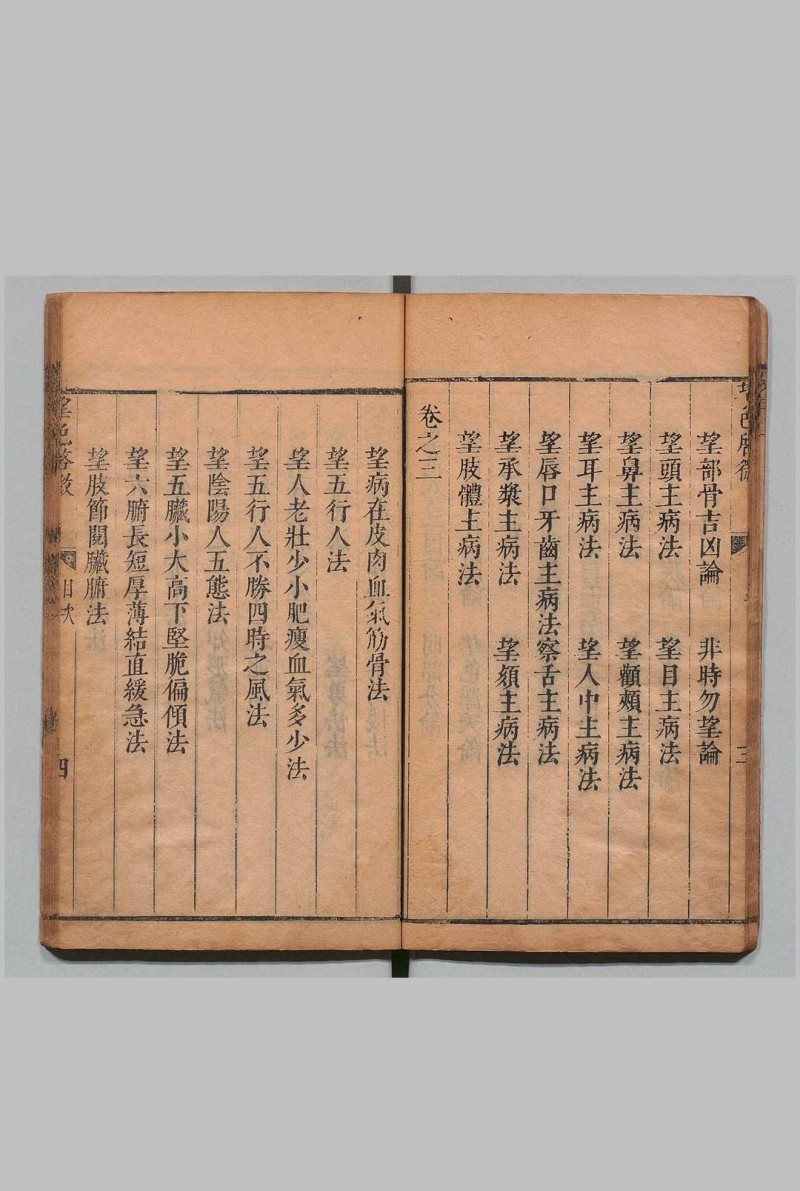 望部骨吉凶論　非時勿望論
望頭主病法　望目主病法
望鼻主病法　望顴頰主病法
望耳主病法　望人中主病法
望唇口牙齒主病法　察舌主病法
望承漿主病法　望頦主病法
望肢體主病法
卷之三
望病在皮肉血氣筋骨法
望五行人法
望人老壯少小肥瘦血氣多少法
望五行人不勝四時之風法
望陰陽人五態法
望五臟小大高下堅脆偏傾法
望六腑長短厚薄結直緩急法
望肢節閱臟腑法
望色啓微　目次　四